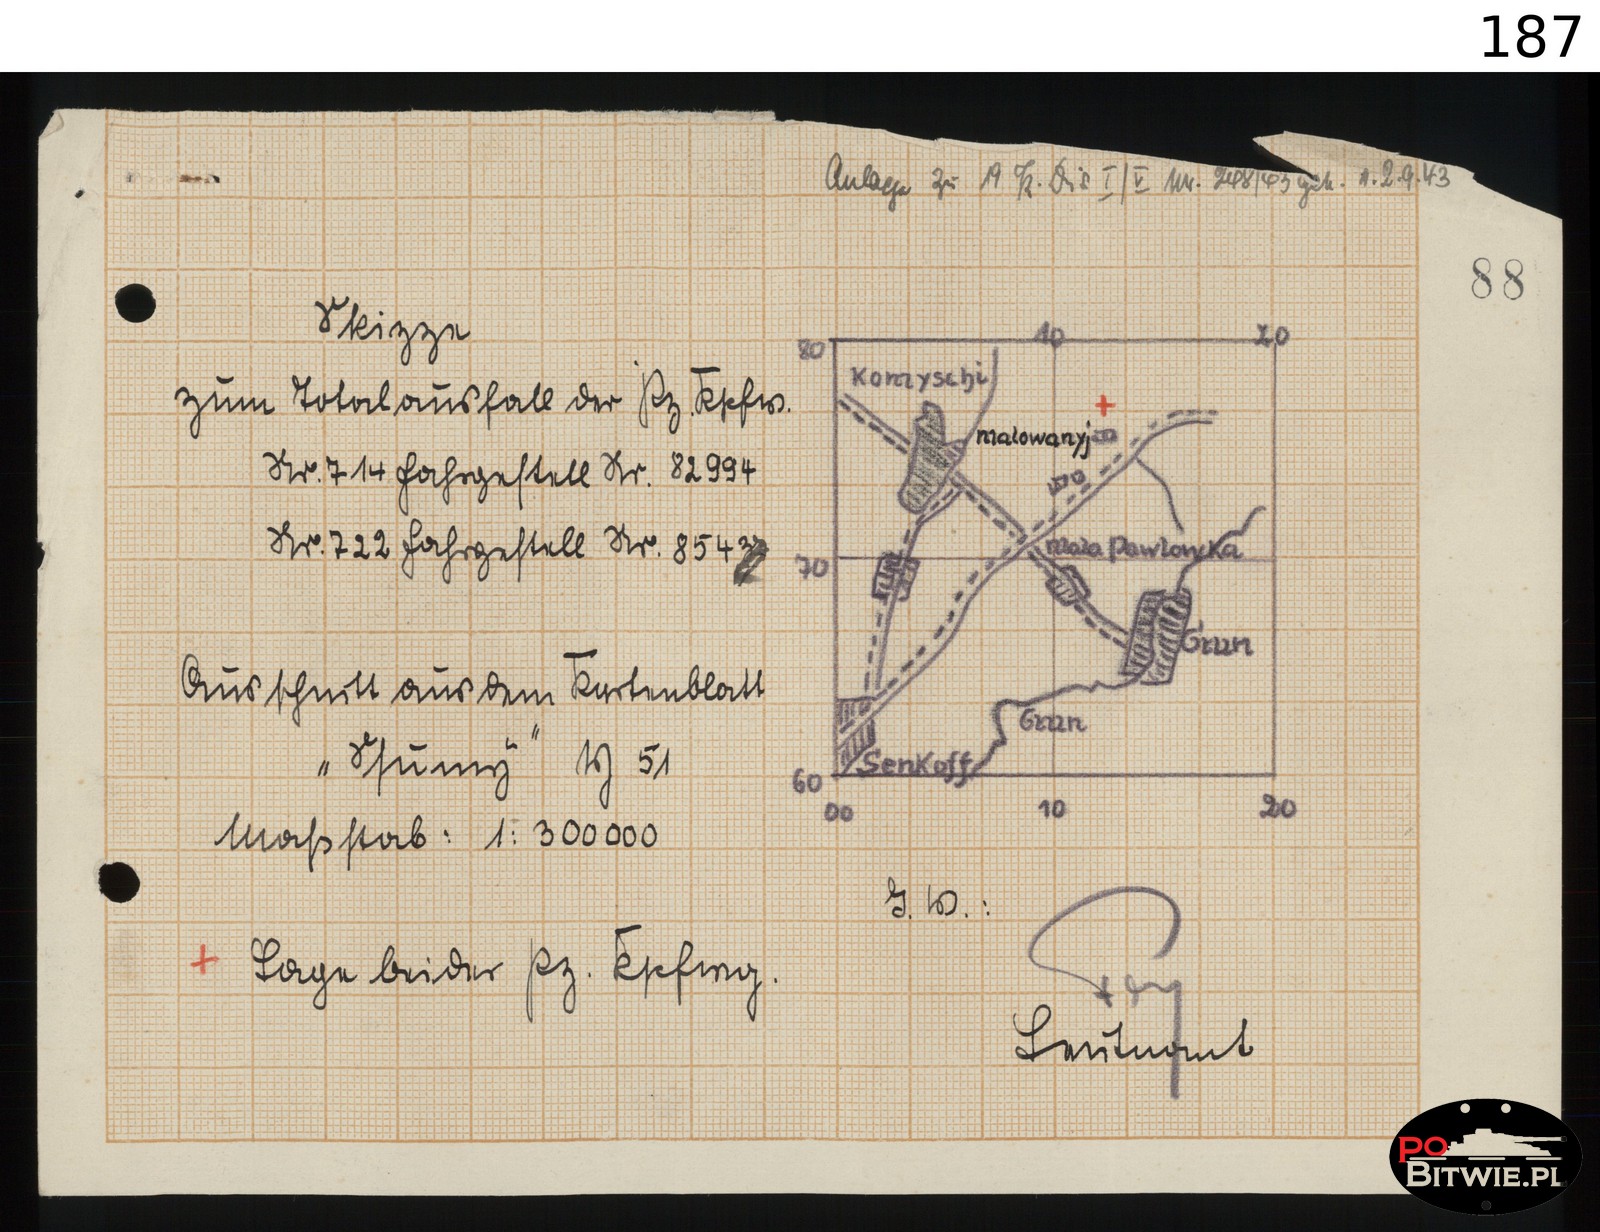 187
Anlage zu
I/ Nr. 248/43 geh. v. 2.9.43
88
Skizze
zum Totalausfall der Pz.Kpfw.
Nr. 714 Fahrgestell Nr. 82994
Nr. 722 Fahrgestell Nr. 854
Ausschnitt aus dem Kartenblatt
„Ssumy" W 51
Maßstab: 1:300000
+ Lage beider Pz. Kpfwg.
80 10 20
Komyschi
malowanyj
70
mala Pawlowka
Grun
Grun
Senkoff
60
00 10 20
J.V.:
Leutnant
PO
BITWIE.PL